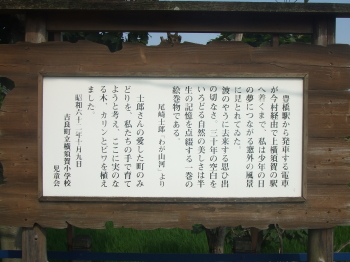 豊橋駅から発車する電車
が今村経由で上横須賀の駅
へ着くまで、私は少年の日
の夢につながる窓外の風景
に見とれてゐた。
波のやうに去来する思ひ出
の切なさ、三十年の空白を
いろどる自然の美しさは半
生の記憶を点綴する一巻の
絵巻物である。
尾崎士郎「わが山河」より
士郎さんの愛した町のみ
どりを、私たちの手で育て
ようと考え、ここに実のな
る木、カリンとビワを植え
ました。
昭和六十二年十月九日
吉良町立横須賀小学校
児童会